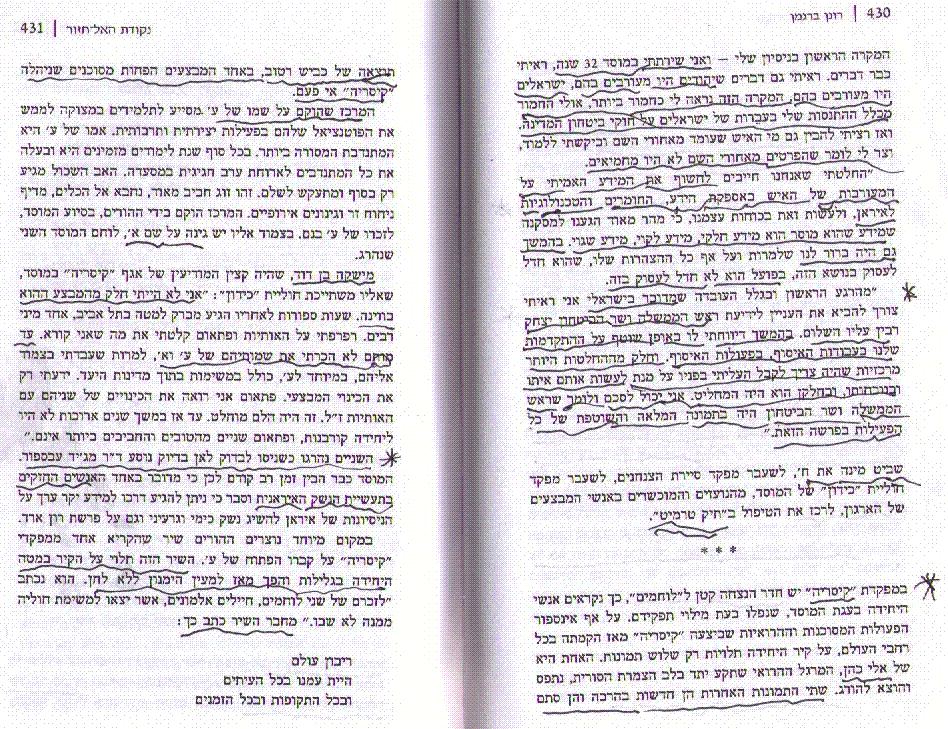 430 | רונן ברגמן
המקרה הראשון בניסיון שלי — ואני שירתתי במוסד 32 שנה, ראיתי
כבר דברים. ראיתי גם דברים שיהודים היו מעורבים בהם, ישראלים
היו מעורבים בהם, המקרה הזה נראה לי כחמור ביותר, אולי החמור
מכלל ההתנסות שלי בעברות של ישראלים על חוקי ביטחון המדינה.
ואז רציתי להבין גם מי האיש שעומד מאחורי השם וביקשתי ללמוד,
וצר לי לומר שהפרטים מאחורי השם לא היו מחמיאים.
"החלטתי שאנחנו חייבים לחשוף את המידע האמיתי על
המעורבות של האיש באספקת הידע, החומרים והטכנולוגיות
לאיראן, ולעשות זאת בכוחות עצמנו, כי מהר מאוד הגענו למסקנה
שמידע שהוא מוסר הוא מידע חלקי, מידע לקוי, מידע שגוי. בהמשך
גם היה ברור לנו שלמרות ועל אף כל ההצהרות שלו, שהוא חדל
לעסוק בנושא הזה, בפועל הוא לא חדל לעסוק בזה.
"מהרגע הראשון ובגלל העובדה שמדובר בישראלי אני ראיתי
צורך להביא את העניין לידיעת ראש הממשלה ושר הביטחון יצחק
רבין עליו השלום. בהמשך דיווחתי לו באופן שוטף על ההתקדמות
שלנו בעבודות האיסוף, בפעולות האיסוף. וחלק מההחלטות היותר
מרכזיות שהיה צריך לקבל העליתי בפניו על מנת לעשות אותם איתו
ובנוכחותו, ובחלקן הוא היה המחליט. אני יכול לסכם ולומר שראש
הממשלה ושר הביטחון היה בתמונה המלאה והשוטפת של כל
הפעילות בפרשה הזאת."
שביט מינה את ח', לשעבר מפקד סיירת הצנחנים, לשעבר מפקד
חוליית "כידון" של המוסד, מהנועזים והמוכשרים באנשי המבצעים
של הארגון, לרכז את הטיפול ב"תיק טרמיט".
* * *
במפקדת "קיסריה" יש חדר הנצחה קטן ל"לוחמים", כך נקראים אנשי
היחידה בעגת המוסד, שנפלו בעת מילוי תפקידם. על אף אינספור
הפעולות המסוכנות וההרואיות שביצעה "קיסריה" מאז הקמתה בכל
רחבי העולם, על קיר היחידה תלויות רק שלוש תמונות. האחת היא
של אלי כהן, המרגל ההרואי שתקע יתד בלב הצמרת הסורית, נתפס
והוצא להורג. שתי התמונות האחרות הן חדשות בהרבה והן סתם
נקודת האל־חזור | 431
תוצאה של כביש רטוב, באחד המבצעים הפחות מסוכנים שניהלה
"קיסריה" אי פעם.
המרכז שהוקם על שמו של ע' מסייע לתלמידים במצוקה לממש
את הפוטנציאל שלהם בפעילות יצירתית ותרבותית. אמו של ע' היא
המתנדבת המסורה ביותר. בכל סוף שנת לימודים מזמינים היא ובעלה
את כל המתנדבים לארוחת ערב חגיגית במסעדה. האב השכול מגיע
רק בסוף ומתעקש לשלם. זהו זוג חביב מאוד, נחבא אל הכלים, מדיף
ניחוח זר וגינונים אירופיים. המרכז הוקם בידי ההורים, בסיוע המוסד,
לזכרו של ע' בנם. בצמוד אליו יש גינה על שם א', לוחם המוסד השני
שנהרג.
מישקה בן דוד, שהיה קצין המודיעין של אגף "קיסריה" במוסד,
שאליו משתייכת חוליית "כידון": "אני לא הייתי חלק מהמבצע ההוא
בווינה. שעות ספורות לאחריו הגיע מברק למטה בתל אביב, אחד מיני
רבים. רפרפתי על האותיות ופתאום קלטתי את מה שאני קורא. עד
מותם לא הכרתי את שמותיהם של ע' וא', למרות שעבדתי בצמוד
אליהם, במיוחד לע', כולל במשימות בתוך מדינות היעד. ידעתי רק
את הכינוי המבצעי. פתאום אני רואה את הכינויים של שניהם עם
האותיות ז"ל. זה היה הלם מוחלט. עד אז במשך שנים ארוכות לא היו
ליחידה קורבנות, ופתאום שניים מהטובים והחביבים ביותר אינם."
השניים נהרגו כשניסו לבדוק לאן בדיוק נוסע ד"ר מג'יד עבספור.
המוסד כבר הבין זמן רב קודם לכן כי מדובר באחד האנשים החזקים
בתעשיית הנשק האיראנית וסבר כי ניתן להגיע דרכו למידע יקר ערך על
הניסיונות של איראן להשיג נשק כימי וגרעיני וגם על פרשת רון ארד.
במקום מיוחד נוצרים ההורים שיר שהקריא אחד ממפקדי
"קיסריה" על קברו הפתוח של ע'. השיר הזה תלוי על הקיר במטה
היחידה בגלילות והפך מאז למעין הימנון ללא לחן. הוא נכתב
"לזכרם של שני לוחמים, חיילים אלמונים, אשר יצאו למשימת חוליה
ממנה לא שבו." מחבר השיר כתב כך:
ריבון עולם
היית עמנו בכל העיתים
ובכל התקופות ובכל הזמנים